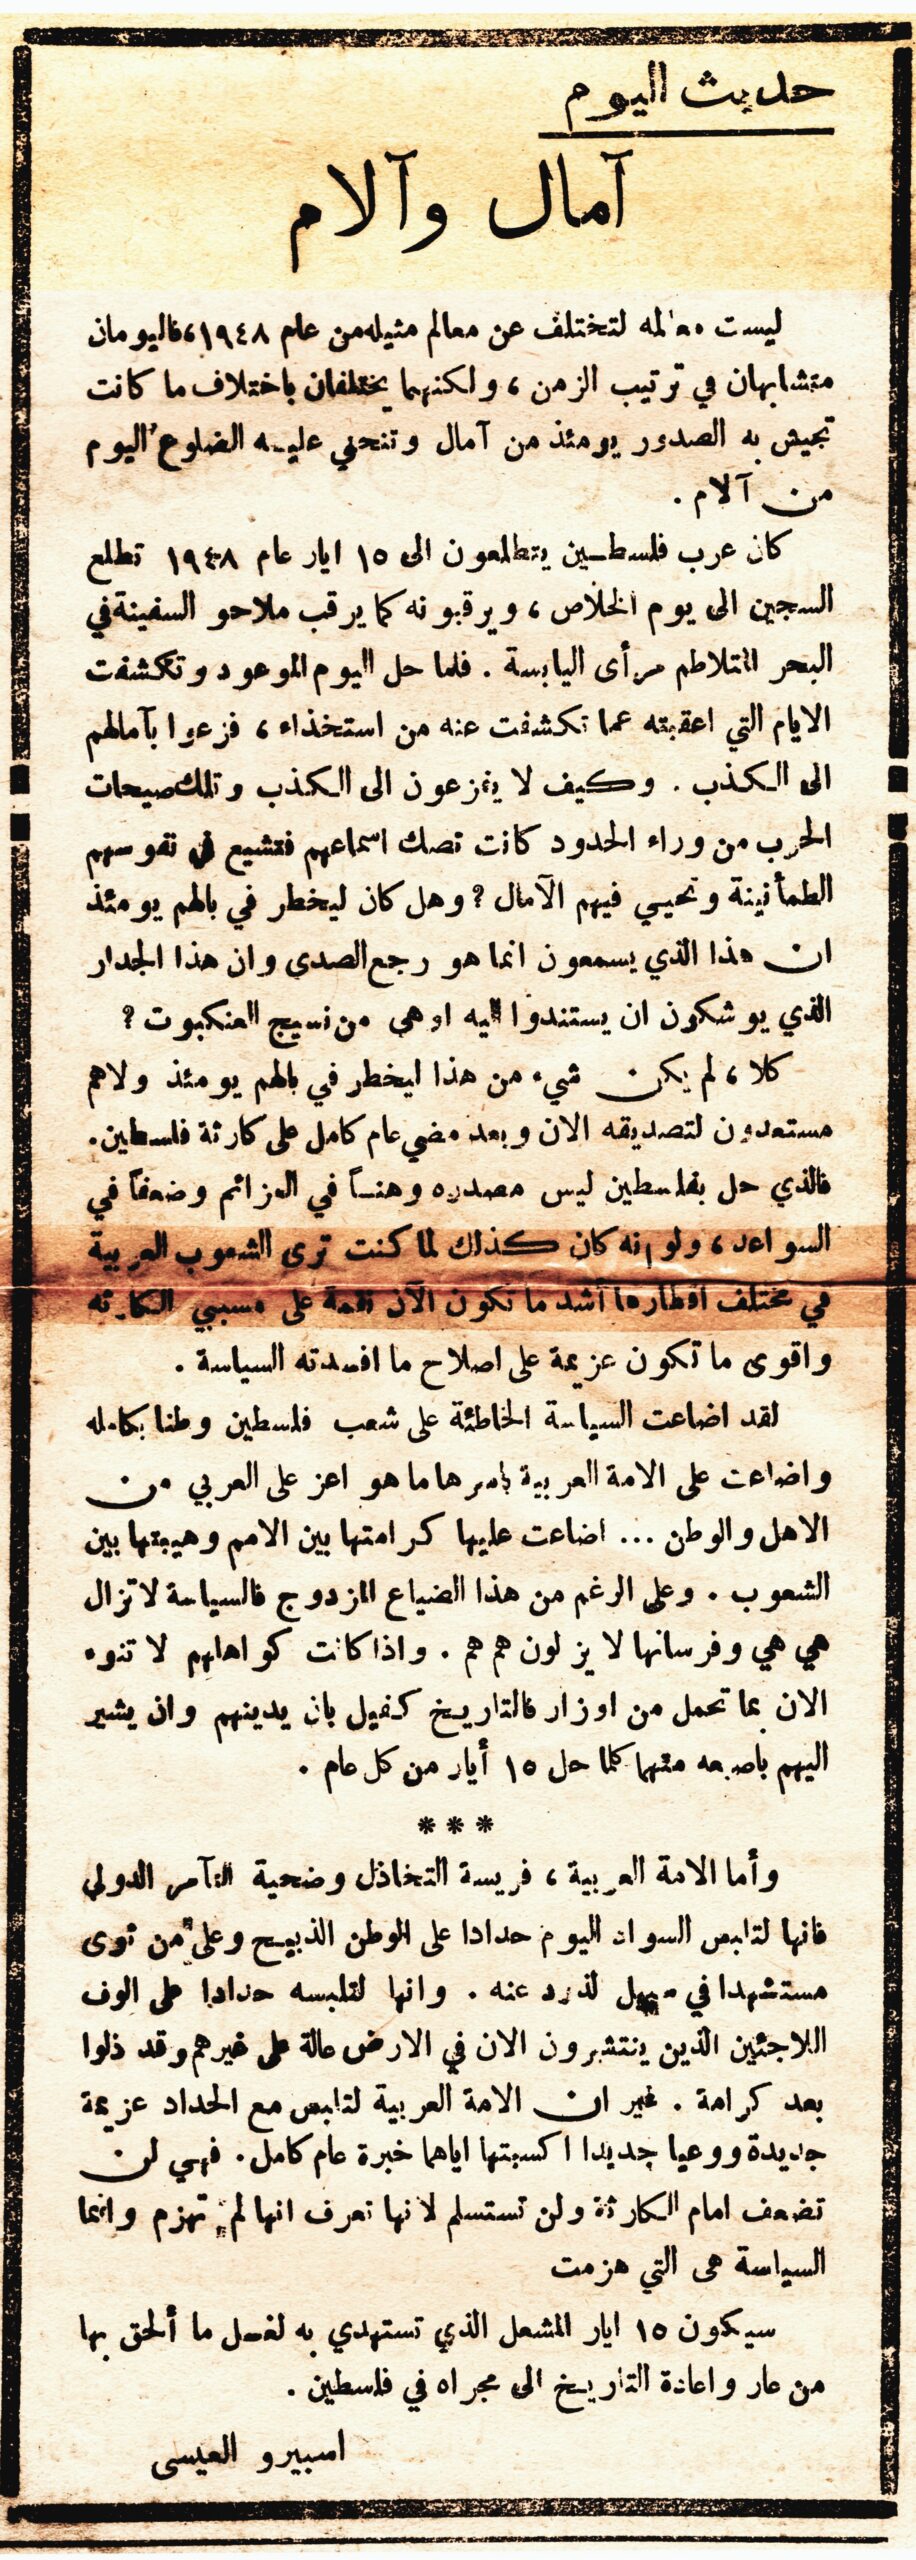 حديث اليوم
آمال وآلام
ليست معالمه لتختلف عن معالم مثيله من عام ١٩٤٨، فاليومان
متشابهان في ترتيب الزمن ، ولكنهما يختلفان باختلاف ما كانت
تجيش به الصدور يومئذ من آمال وتنحني عليه الضلوع اليوم
من آلام .
كان عرب فلسطين يتطلعون الى ١٥ ايار عام ١٩٤٨ تطلع
السجين الى يوم الخلاص ، ويرقبونه كما يرقب ملاحو السفينة في
البحر المتلاطم مرأى اليابسة . فلما حل اليوم الموعود وتكشفت
الايام التي اعقبته عما تكشفت عنه من استخذاء ، فزعوا بآمالهم
الى الكذب . وكيف لا يفزعون الى الكذب وتلك صيحات
الحرب من وراء الحدود كانت تصك اسماعهم فتشيع في نفوسهم
الطمأنينة وتحيي فيهم الآمال ؟ وهل كان ليخطر في بالهم يومئذ
ان هذا الذي يسمعون انما هو رجع الصدى وان هذا الجدار
الذي يوشكون ان يستندوا اليه اوهى من نسيج العنكبوت ؟
كلا ، لم يكن شيء من هذا ليخطر في بالهم يومئذ ولا هم
مستعدون لتصديقه الان وبعد مضي عام كامل على كارثة فلسطين .
فالذي حل بفلسطين ليس مصدره وهنـاً في العزائم وضعفاً في
السواعد ، ولو انه كان كذلك لما كنت ترى الشعوب العربية
في مختلف اقطارها أشد ما تكون الآن نقمة على مسببي الكارثة
واقوى ما تكون عزيمة على اصلاح ما افسدته السياسة .
لقد اضاعت السياسة الخاطئة على شعب فلسطين وطنا بكامله
واضاعت على الامة العربية باسرها ما هو اعز على العربي من
الاهل والوطن ... اضاعت عليها كرامتها بين الامم وهيبتها بين
الشعوب . وعلى الرغم من هذا الضياع المزدوج فالسياسة لا تزال
هي هي وفرسانها لا يزلون هم هم . واذا كانت كواهلهم لا تنوء
الان بما تحمل من اوزار فالتاريخ كفيل بان يدينهم وان يشير
اليهم باصبعه متهما كلما حل ١٥ أيار من كل عام .
* * *
وأما الامة العربية ، فريسة التخاذل وضحية التآمر الدولي
فانها لتلبس السواد اليوم حدادا على الوطن الذبيح وعلى من ثوى
مستشهدا في سبيل الذود عنه . وانها لتلبسه حدادا على الوف
اللاجئين الذين ينتشرون الان في الارض عالة على غيرهم وقد ذلوا
بعد كرامة . غير ان الامة العربية لتلبس مع الحداد عزيمة
جديدة ووعيا جديدا اكسبتها اياهما خبرة عام كامل . فهي لن
تضعف امام الكارثة ولن تستسلم لانها تعرف انها لم تهزم وانما
السياسة هي التي هزمت
سيكون ١٥ ايار المشعل الذي تستهدي به لغسل ما ألحق بها
من عار واعادة التاريخ الى مجراه في فلسطين .
اسبيرو العيسى